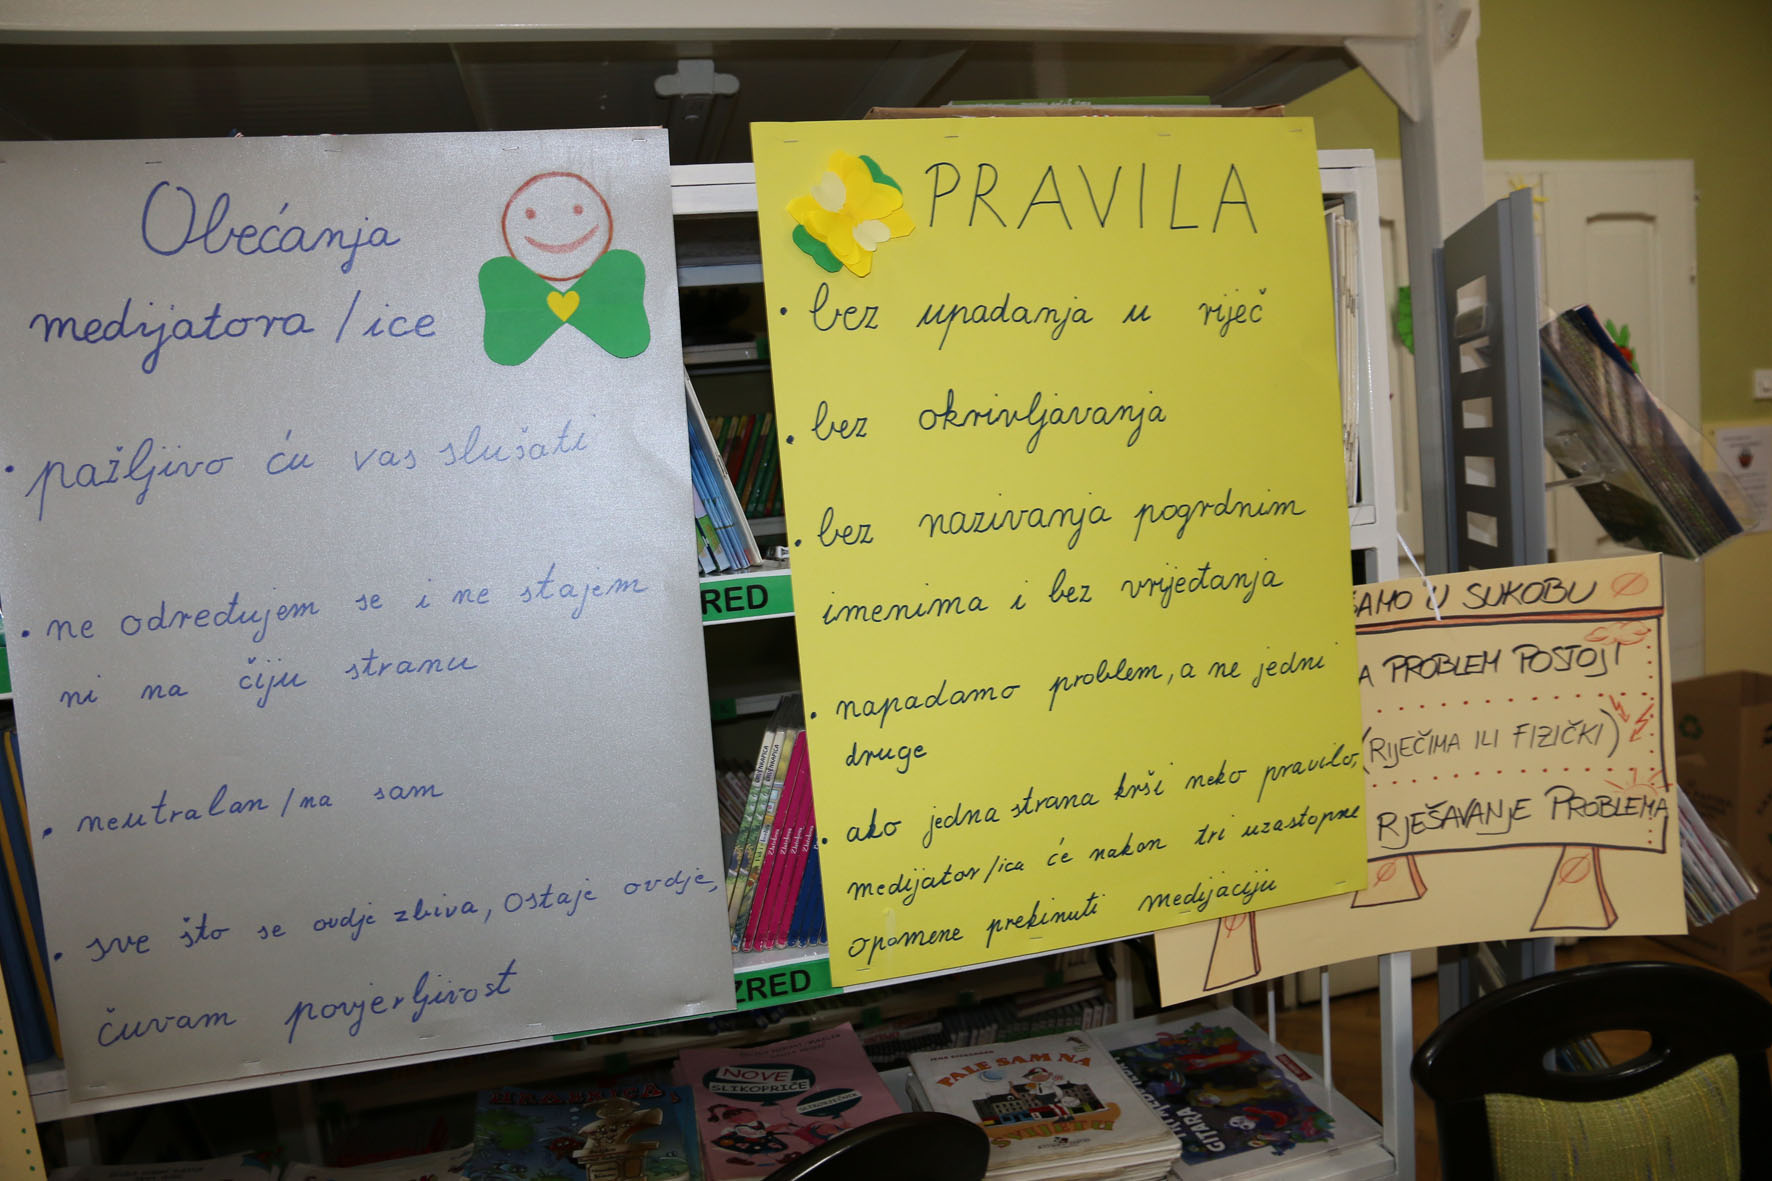 Obećanja
medijatora/ice
• pažljivo ću vas slušati
• ne određujem se i ne stajem
ni na čiju stranu
• neutralan/na sam
• sve što se ovdje zbiva, ostaje ovdje,
čuvam povjerljivost
PRAVILA
• bez upadanja u riječ
• bez okrivljavanja
• bez nazivanja pogrdnim
imenima i bez vrijeđanja
• napadamo problem, a ne jedni
druge
• ako jedna strana krši neko pravilo,
medijator/ica će nakon tri uzastopne
opomene prekinuti medijaciju
ŠAMO U SUKOBU
A PROBLEM POSTOJI
(RIJEČIMA ILI FIZIČKI)
RJEŠAVANJE PROBLEMA
RED
ZRED
NOVE
SLIKOPRIČE
PALE SAM NA
SVIJETU
GITARA